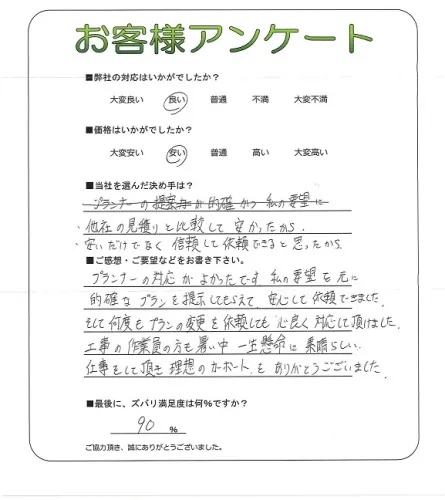 お客様アンケート
■弊社の対応はいかがでしたか?
大変良い 良い 普通 不満 大変不満
■価格はいかがでしたか?
大変安い 安い 普通 高い 大変高い
■当社を選んだ決め手は?
プランナーの提案が的確かつ私の要望に
・他社の見積りと比較して安かったから.
・安いだけでなく信頼して依頼できると思ったから.
■ご感想・ご要望などをお書き下さい。
プランナーの対応がよかったです 私の要望を元に
的確なプランを提示してもらえて、安心して依頼できました.
そして何度もプランの変更を依頼しても心良く対応して頂けました.
工事の作業員の方も暑い中一生懸命に素晴らしい.
仕事をして頂き理想のカーポートをありがとうございました.
■最後に、ズバリ満足度は何%ですか?
90 %
ご協力頂き、誠にありがとうございました。